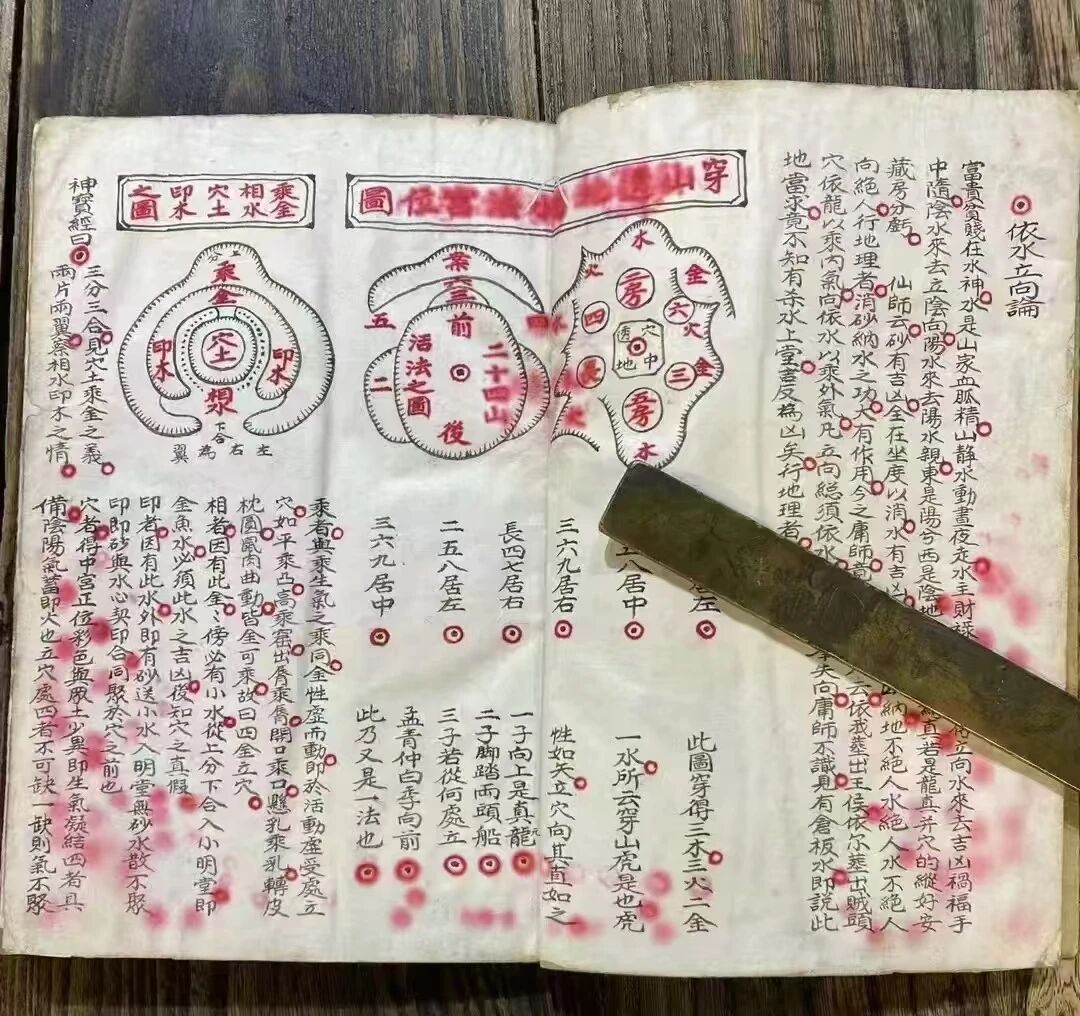 依水立向論
富貴貧賤在水神水是山家血脈精山静水動晝夜走水主財禄
中隨陰水來去立陰向陽水來去陽水親東是陽兮西是陰地
立向水來去吉凶禍福手
真若是龍真并穴的縱好安
藏房分虧
仙師云砂有吉凶全在坐度以消水有吉凶
納地不絕人水絕人水不絕人
向絕人行地理者消砂納水之功大有作用今之庸師
云依我葬出王侯依尔葬出賊頭
穴依龍以乘内氣向依水以乘外氣凡立向総須依水
失向庸師不識見有倉板水即説此
地當求竟不知有杀水上堂吉反為凶矣行地理者
穿山
位圖
水
金
火
二房
六
穴
四
金
透地
穴中
長
三
五房
水
居左
八居中
三六九居右
此圖穿得三木三火二金
一水所云穿山虎是也虎
性如天立穴向其直如之
案
五
二
四
前
二十四山
活法之圖
後
長四七居右
二五八居左
三六九居中
一子向上是真龍
二子脚踏両頭船
三子若從何處立
孟青仲白季向前
此乃又是一法也
乘金相水穴土印木之圖
上分
乘金
穴土
印木
印木
下合
左右為翼
神寶經曰
三分三合見穴土乘金之義
兩片兩翼察相水印木之情
乘者與乘生氣之乘同金性虛而動即於活動虛受處立
穴如平乘凸高乘窩出脣乘脣開口乘口懸乳乘乳轉皮
枕圓鼠肉曲動皆金可乘故曰四金立穴
相者因有此金〻傍必有小水從上分下合入小明堂即
金魚水必須此水之吉凶後知穴之真假
印者因有此水外即有砂送小水入明堂無砂水散不聚
印即砂與水心契印合同聚於穴之前也
穴者得中宫正位彩色與眾土少異即生氣凝結四者具
備陰陽氣蓄即火也立穴處四者不可缺一缺則氣不聚